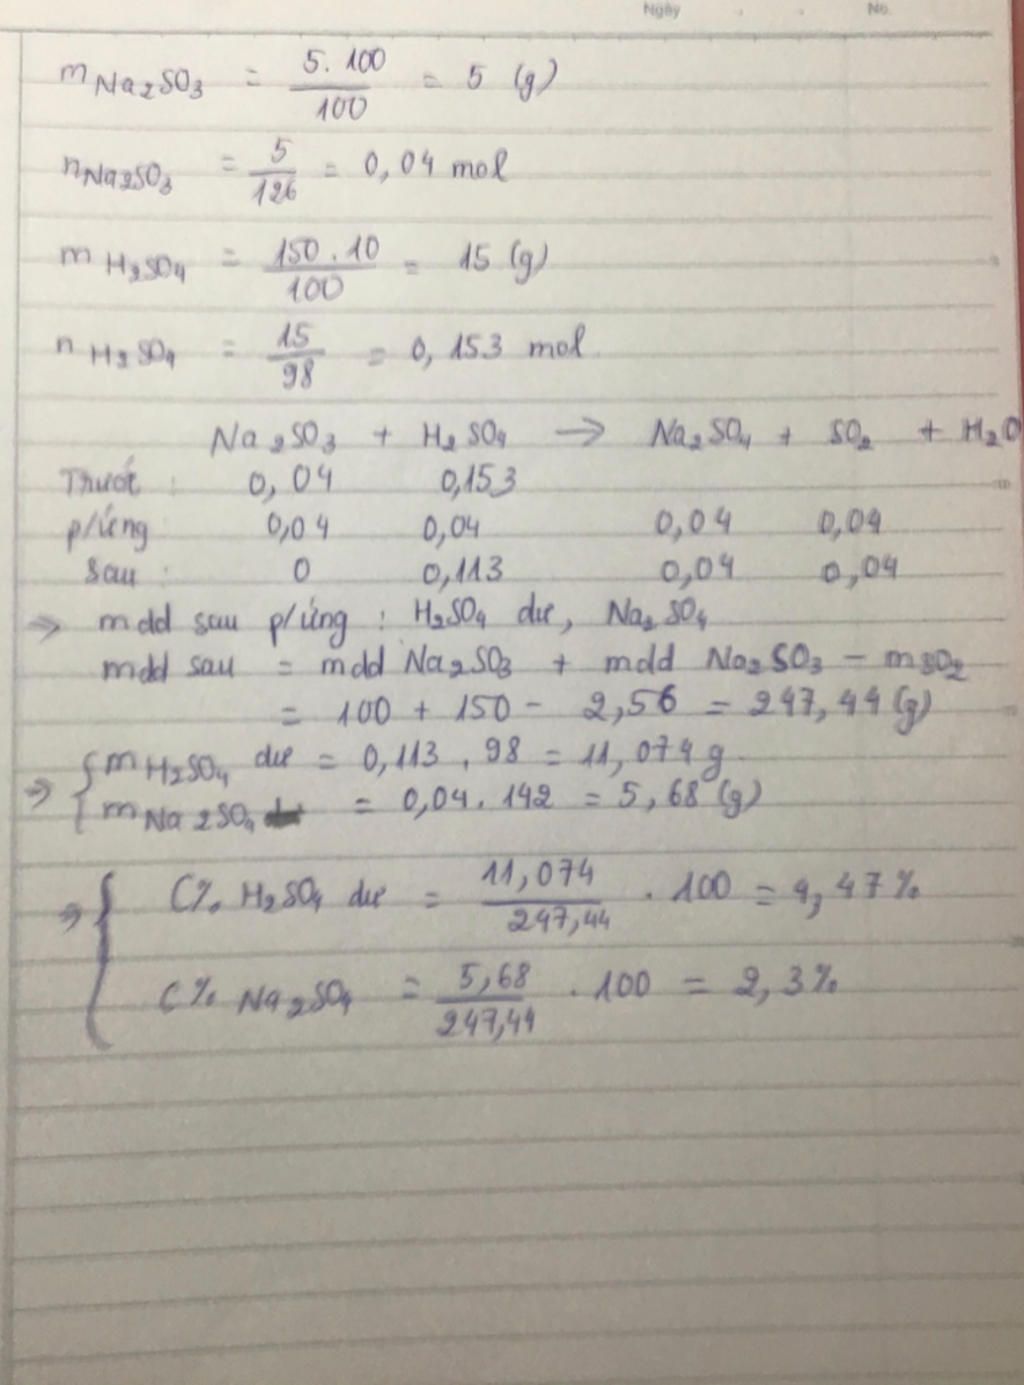 Ngày . . No.
m Na₂SO₃ = 5.100/100 = 5 (g)
n Na₂SO₃ = 5/126 = 0,04 mol
m H₂SO₄ = 150.10/100 = 15 (g)
n H₂SO₄ = 15/98 = 0,153 mol
Na₂SO₃ + H₂SO₄ → Na₂SO₄ + SO₂ + H₂O
Trước : 0,04 0,153
p/ứng 0,04 0,04 0,04 0,04
sau : 0 0,113 0,04 0,04
⇒ mdd sau p/ứng : H₂SO₄ dư, Na₂SO₄
mdd sau = mdd Na₂SO₃ + mdd Na₂SO₃ − mSO₂
= 100 + 150 - 2,56 = 247,44 (g)
⇒ { m H₂SO₄ dư = 0,113 . 98 = 11,074 g
m Na₂SO₄ = 0,04 . 142 = 5,68 (g)
⇒ { C% H₂SO₄ dư = 11,074/247,44 . 100 = 4,47%
C% Na₂SO₄ = 5,68/247,44 . 100 = 2,3%